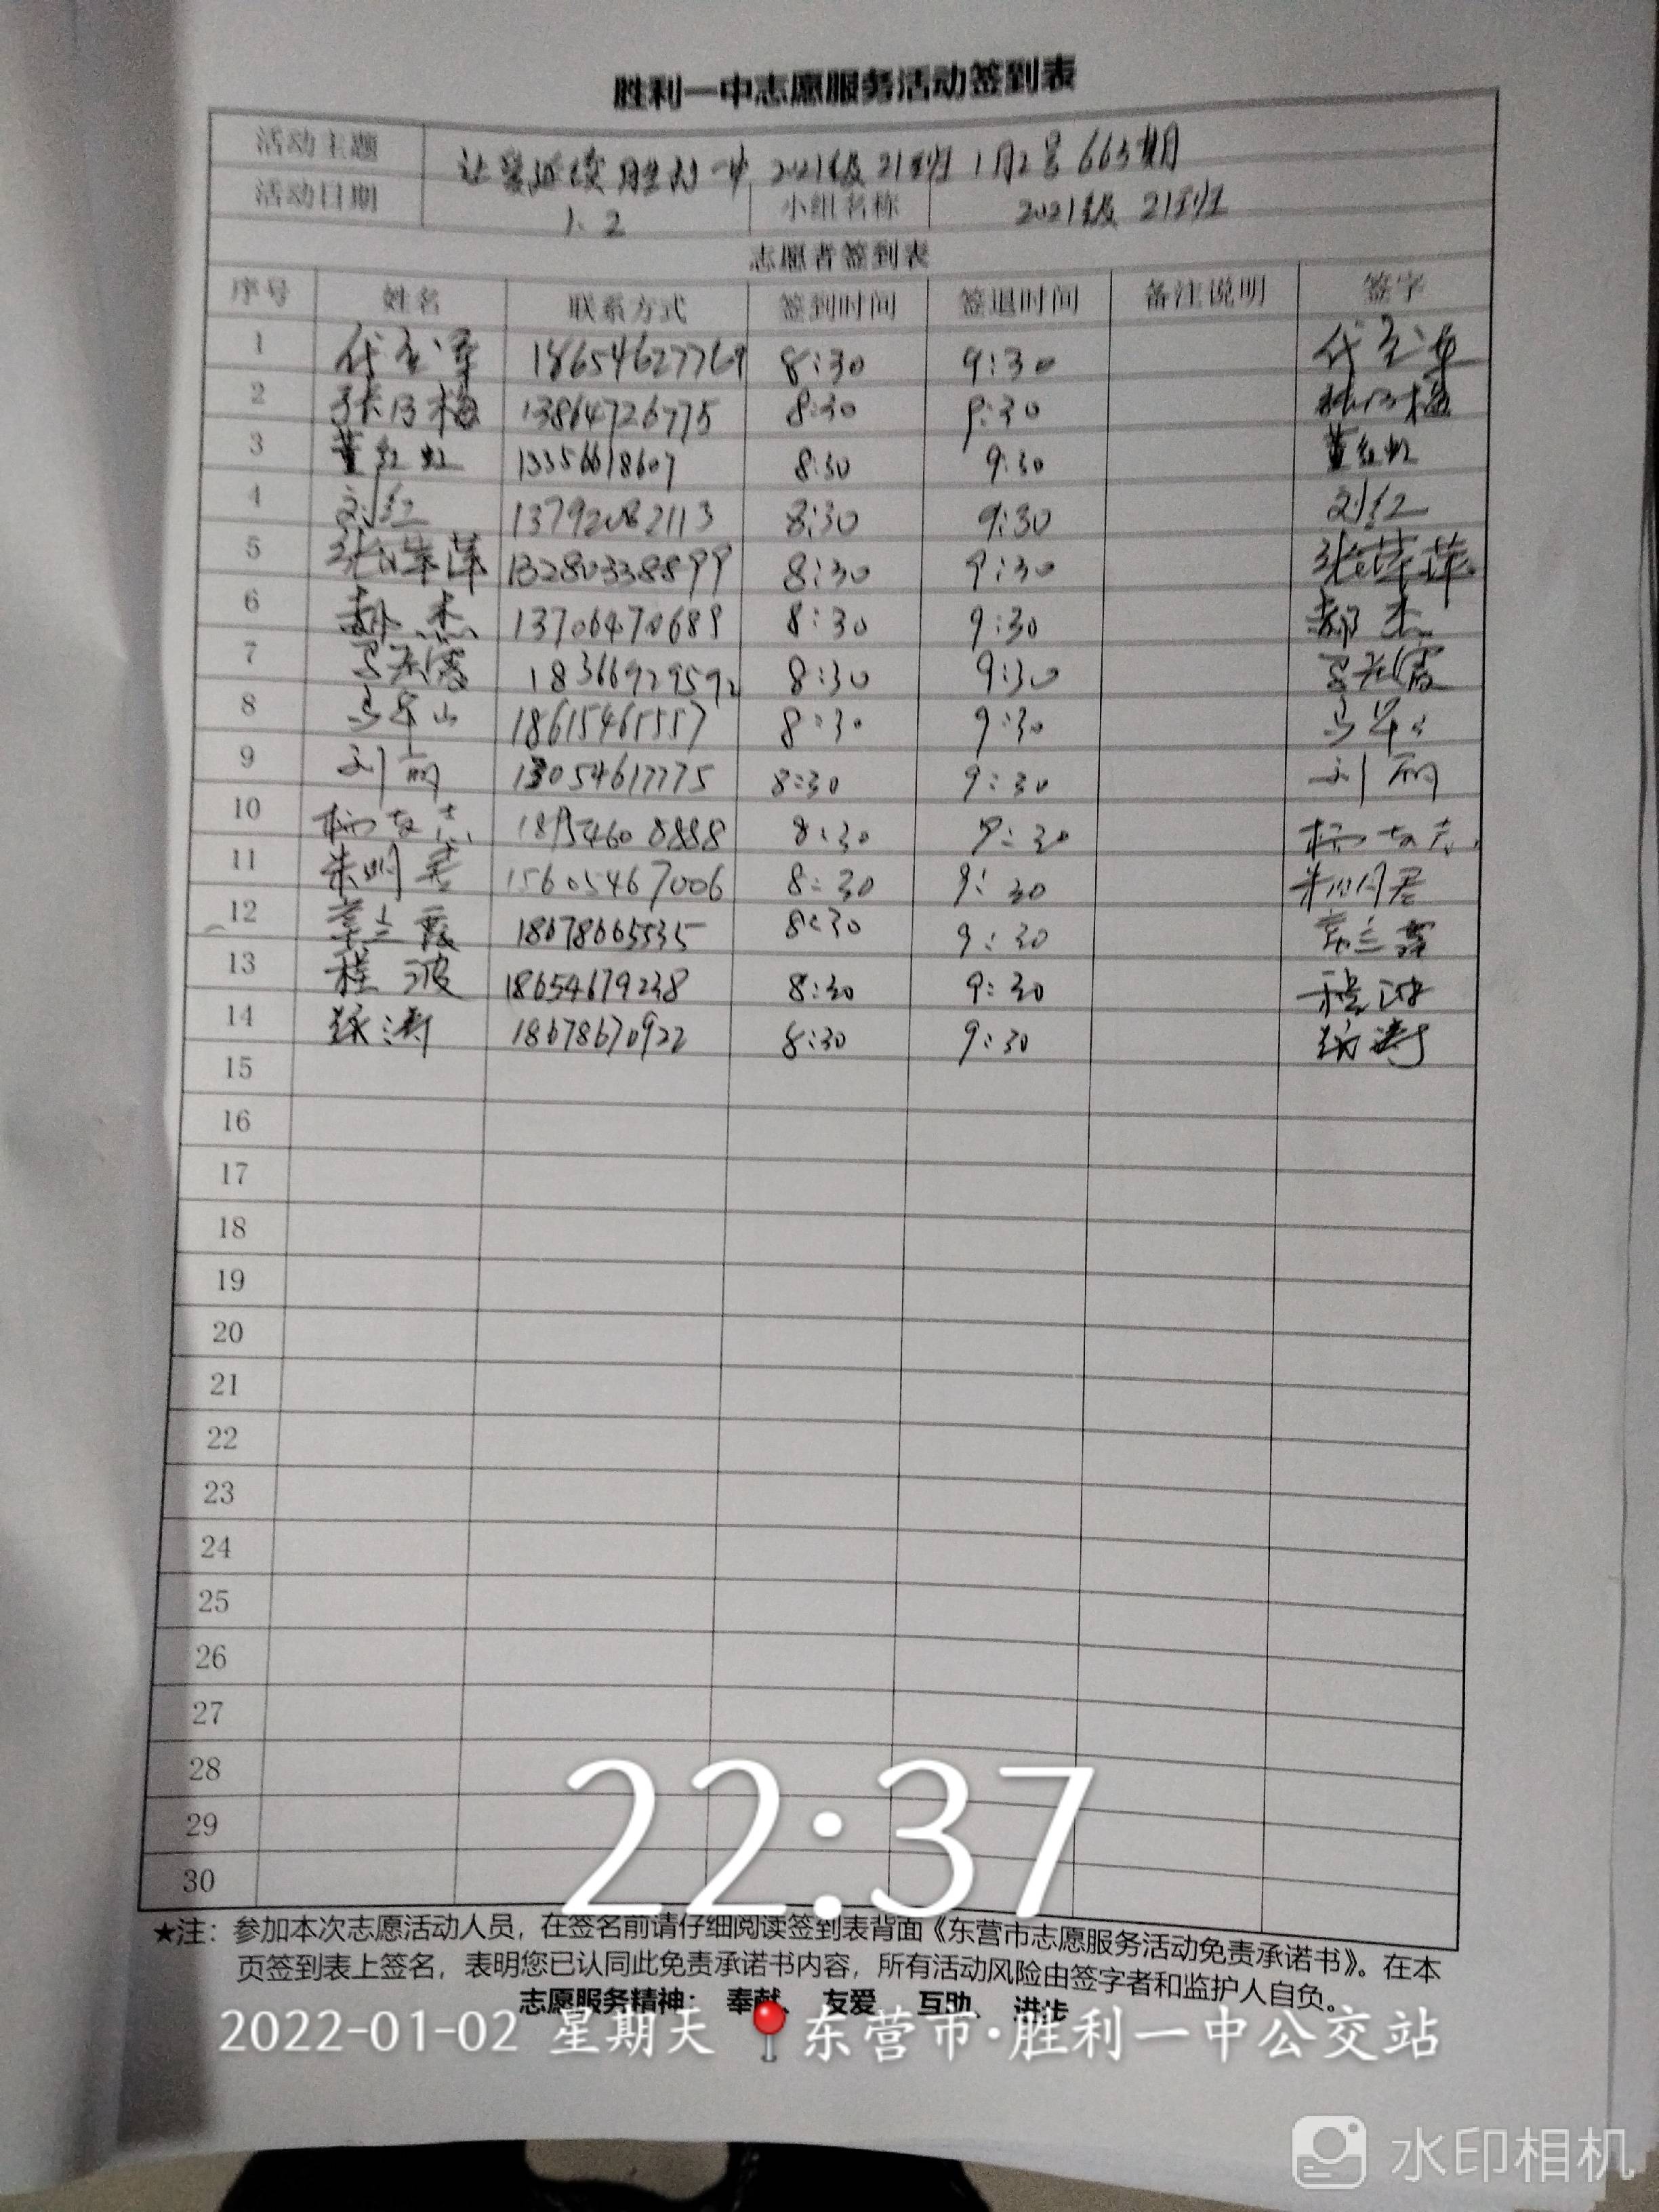 胜利一中志愿服务活动签到表
活动主题 让爱延续 胜利一中 2021级21班 1月2号 663期
活动日期 1.2 小组名称 2021级 21班
志愿者签到表
序号 姓名 联系方式 签到时间 签退时间 备注说明 签字
1 18654627769 8:30 9:30
2 张 梅 13864726775 8:30 9:30
3 董红虹 13356618607 8:30 9:30 董红虹
4 刘红 13792082113 8:30 9:30 刘红
5 张萍萍 13280338899 8:30 9:30 张萍萍
6 郝杰 13706470689 8:30 9:30 郝杰
7 18366929592 8:30 9:30
8 18615465557 8:30 9:30
9 刘丽 13054617775 8:30 9:30 刘丽
10 8:30 9:30
11 朱明 15605467006 8:30 9:30
12 18678665535 8:30 9:30
13 程波 18654679238 8:30 9:30 程波
14 徐涛 18678670922 8:30 9:30 徐涛
15
16
17
18
19
20
21
22
23
24
25
26
27
28
29
30
22:37
★注：参加本次志愿活动人员，在签名前请仔细阅读签到表背面《东营市志愿服务活动免责承诺书》。在本
页签到表上签名，表明您已认同此免责承诺书内容，所有活动风险由签字者和监护人自负。
志愿服务精神： 奉献、 友爱、 互助、 进步
2022-01-02 星期天 东营市·胜利一中公交站
水印相机